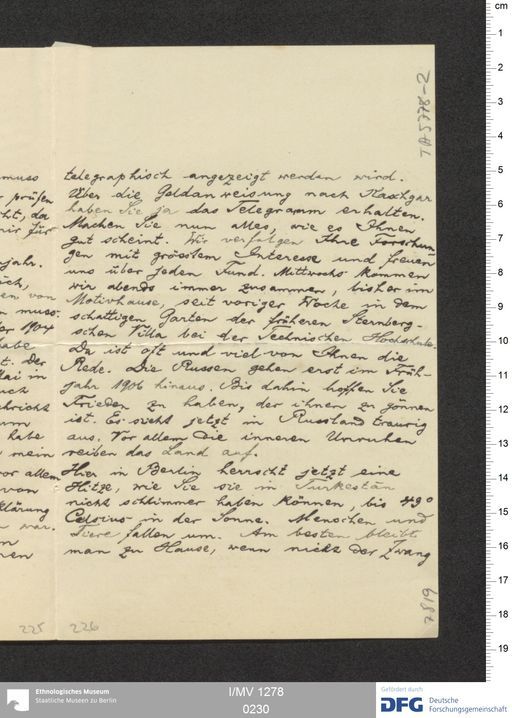 TA 5778-2
muss
prüfen
da
mir für
jahr.
ich,
von
muss
1904
habe
Der
Mai in
auch
Nachricht
habe
mein
vor allem
von
klärung
war.
telegraphisch angezeigt werden wird.
Über die Geldanweisung nach Kaschgar
haben Sie ja das Telegramm erhalten.
Machen Sie nun alles, wie es Ihnen
gut scheint. Wir verfolgen Ihre Forschun-
gen mit grösstem Interesse und freuen
uns über jeden Fund. Mittwochs kommen
wir abends immer zusammen, bisher im
Motivhause, seit voriger Woche in dem
schattigen Garten der früheren Sternberg-
schen Villa bei der Technischen Hochschule.
Da ist oft und viel von Ihnen die
Rede. Die Russen gehen erst im Früh-
jahr 1906 hinaus. Bis dahin hoffen Sie
Frieden zu haben, der ihnen zu gönnen
ist. Es sieht jetzt in Russland traurig
aus. Vor allem die inneren Unruhen
reiben das Land auf.
Hier in Berlin herrscht jetzt eine
Hitze, wie Sie sie in Turkestan
nicht schlimmer haben können, bis 49°
Celsius in der Sonne. Menschen und
Tiere fallen um. Am besten bleibt
man zu Hause, wenn nicht der Zwang
7819
225 226
cm
1
2
3
4
5
6
7
8
9
10
11
12
13
14
15
16
17
18
19
Ethnologisches Museum
Staatliche Museen zu Berlin
I/MV 1278
0230
Gefördert durch
DFG Deutsche
Forschungsgemeinschaft